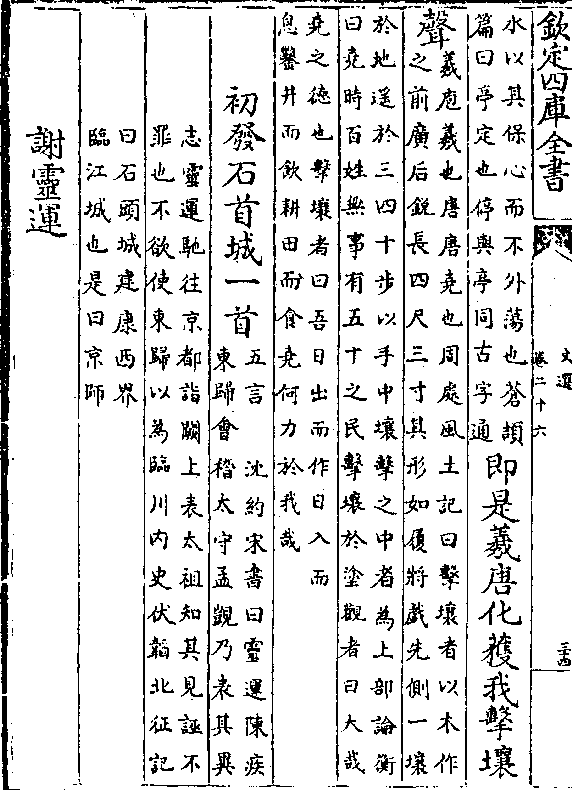 欽定四庫全書
文選
卷二十六
三四
水以其保心而不外蕩也蒼頡
篇曰亭定也停與亭同古字通
即是羲唐化獲我擊壤
聲
羲庖羲也唐唐堯也周處風土記曰擊壤者以木作
之前廣后銳長四尺三寸其形如履將戲先側一壤
於地遥於三四十步以手中壤擊之中者為上部論衡
曰堯時百姓無事有五十之民擊壤於塗觀者曰大哉
堯之德也擊壤者曰吾日出而作日入而
息鑿井而飲耕田而食堯何力於我哉
初發石首城一首
五言 沈約宋書曰靈運陳疾
東歸會稽太守孟覬乃表其異
志靈運馳往京都詣闕上表太祖知其見誣不
罪也不欲使東歸以為臨川内史伏韜北征記
曰石頭城建康西界
臨江城也是曰京師
謝靈運